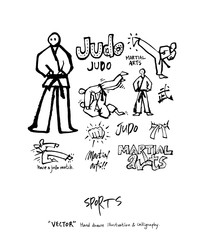 Judo
JUDO
MARTIAL
ARTS
JUDO
Have a judo match.
Martial
Arts!!
MARTIAL
arts
SPORTS
"VECTOR" Hand drawn Illustration & Calligraphy